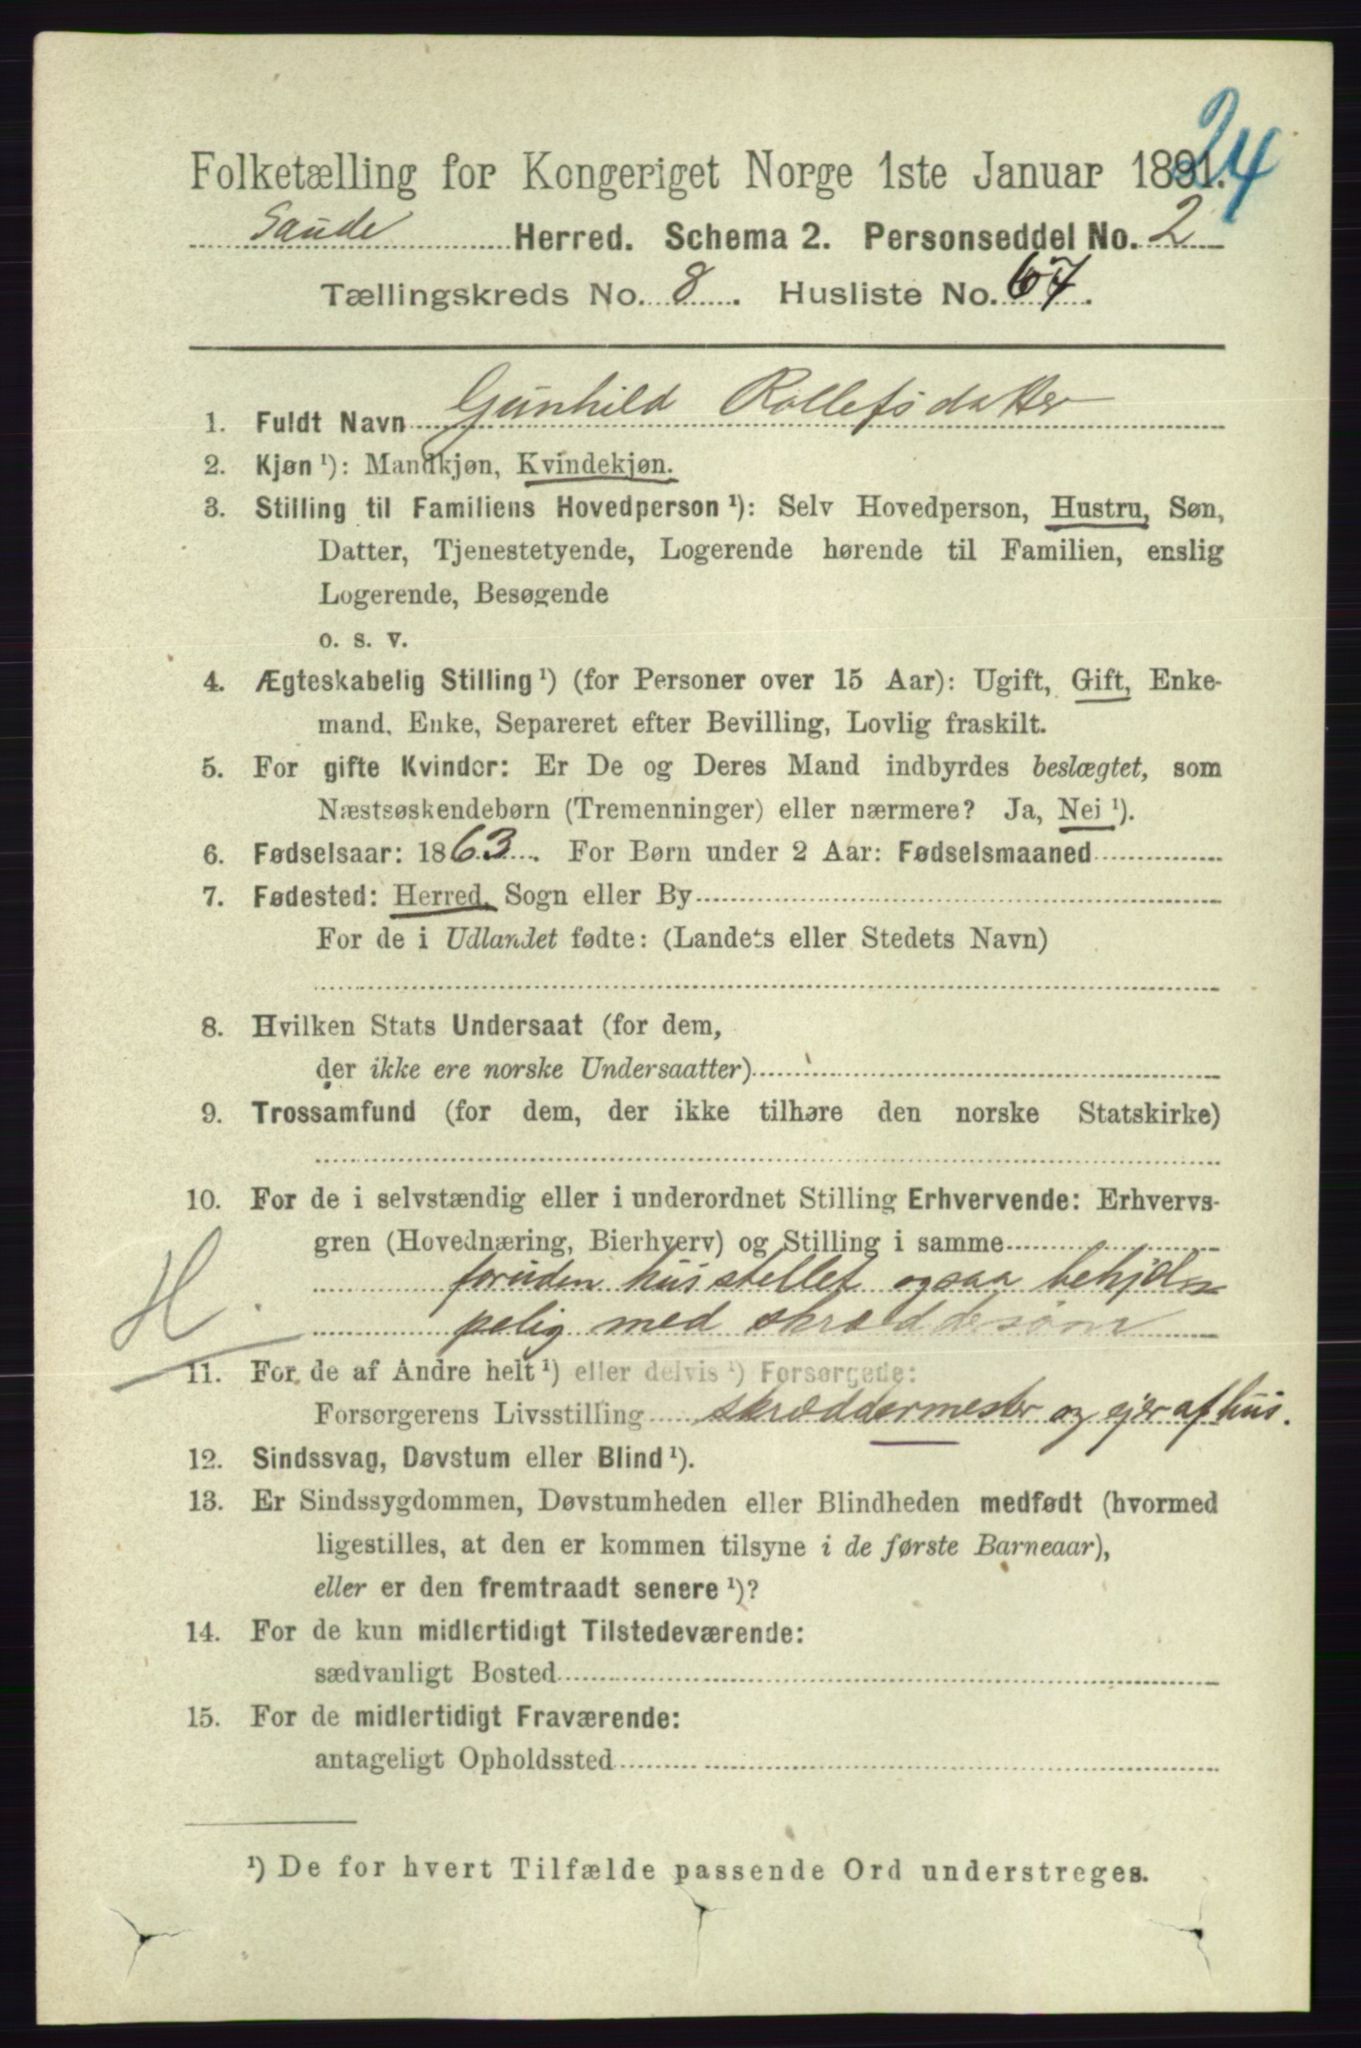 24
Folketælling for Kongeriget Norge 1ste Januar 1891.
Saude Herred. Schema 2. Personseddel No. 2
Tællingskreds No. 8. Husliste No. 67.
1. Fuldt Navn Gunhild Rollefsdatter
2. Kjøn ¹): Mandkjøn, Kvindekjøn.
3. Stilling til Familiens Hovedperson ¹): Selv Hovedperson, Hustru, Søn,
Datter, Tjenestetyende, Logerende hørende til Familien, enslig
Logerende, Besøgende
o. s. v.
4. Ægteskabelig Stilling ¹) (for Personer over 15 Aar): Ugift, Gift, Enke-
mand, Enke, Separeret efter Bevilling, Lovlig fraskilt.
5. For gifte Kvinder: Er De og Deres Mand indbyrdes beslægtet, som
Næstsøskendebørn (Tremenninger) eller nærmere? Ja, Nei ¹).
6. Fødselsaar: 1863. For Børn under 2 Aar: Fødselsmaaned
7. Fødested: Herred, Sogn eller By
For de i Udlandet fødte: (Landets eller Stedets Navn)
8. Hvilken Stats Undersaat (for dem,
der ikke ere norske Undersaatter)
9. Trossamfund (for dem, der ikke tilhøre den norske Statskirke)
10. For de i selvstændig eller i underordnet Stilling Erhvervende: Erhvervs-
gren (Hovednæring, Bierhverv) og Stilling i samme
foruden husstellet ogsaa behjæl-
H. pelig med skræddersøm
11. For de af Andre helt ¹) eller delvis ¹) Forsørgede:
Forsørgerens Livsstilling skræddermester og ejer af hus.
12. Sindssvag, Døvstum eller Blind ¹).
13. Er Sindssygdommen, Døvstumheden eller Blindheden medfødt (hvormed
ligestilles, at den er kommen tilsyne i de første Barneaar),
eller er den fremtraadt senere ¹)?
14. For de kun midlertidigt Tilstedeværende:
sædvanligt Bosted
15. For de midlertidigt Fraværende:
antageligt Opholdssted
¹) De for hvert Tilfælde passende Ord understreges.